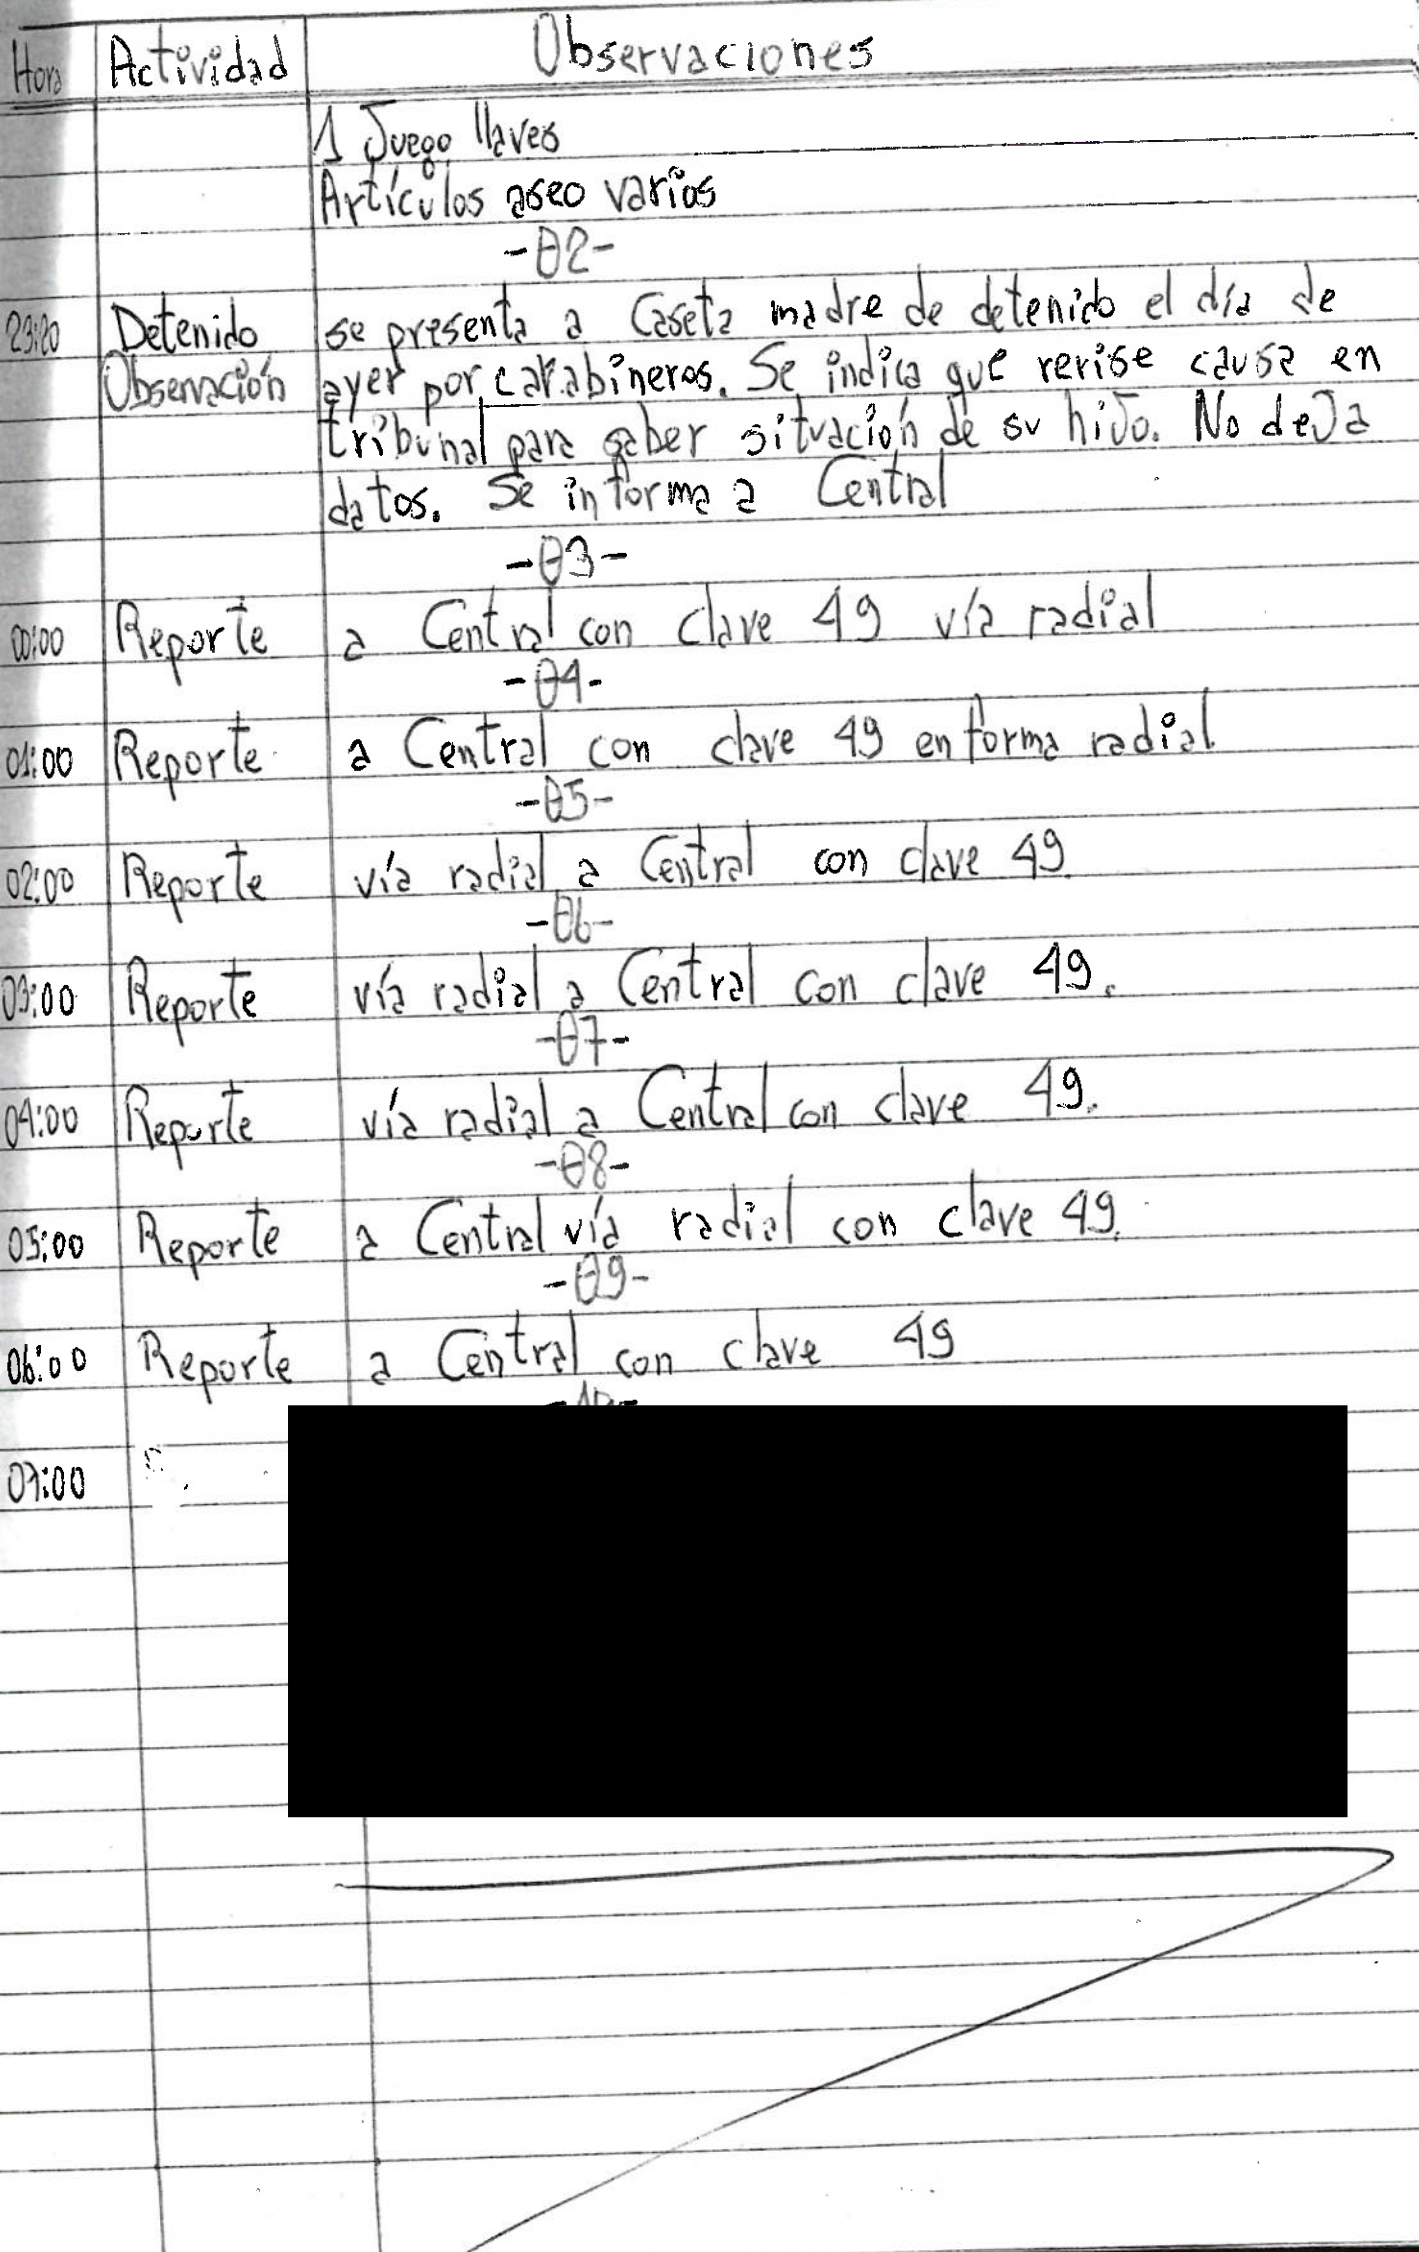 Hora Actividad Observaciones
1 Juego llaves
Artículos aseo varios
-02-
23:20 Detenido se presenta a Caseta madre de detenido el día de
Observación ayer por carabineros. Se indica que revise causa en
tribunal para saber situación de su hijo. No deja
datos. Se informa a Central
-03-
00:00 Reporte a Central con clave 49 vía radial
-04-
01:00 Reporte a Central con clave 49 en forma radial
-05-
02:00 Reporte vía radial a Central con clave 49.
-06-
03:00 Reporte vía radial a Central con clave 49.
-07-
04:00 Reporte vía radial a Central con clave 49.
-08-
05:00 Reporte a Central vía radial con clave 49.
-09-
06:00 Reporte a Central con clave 49
-10-
07:00